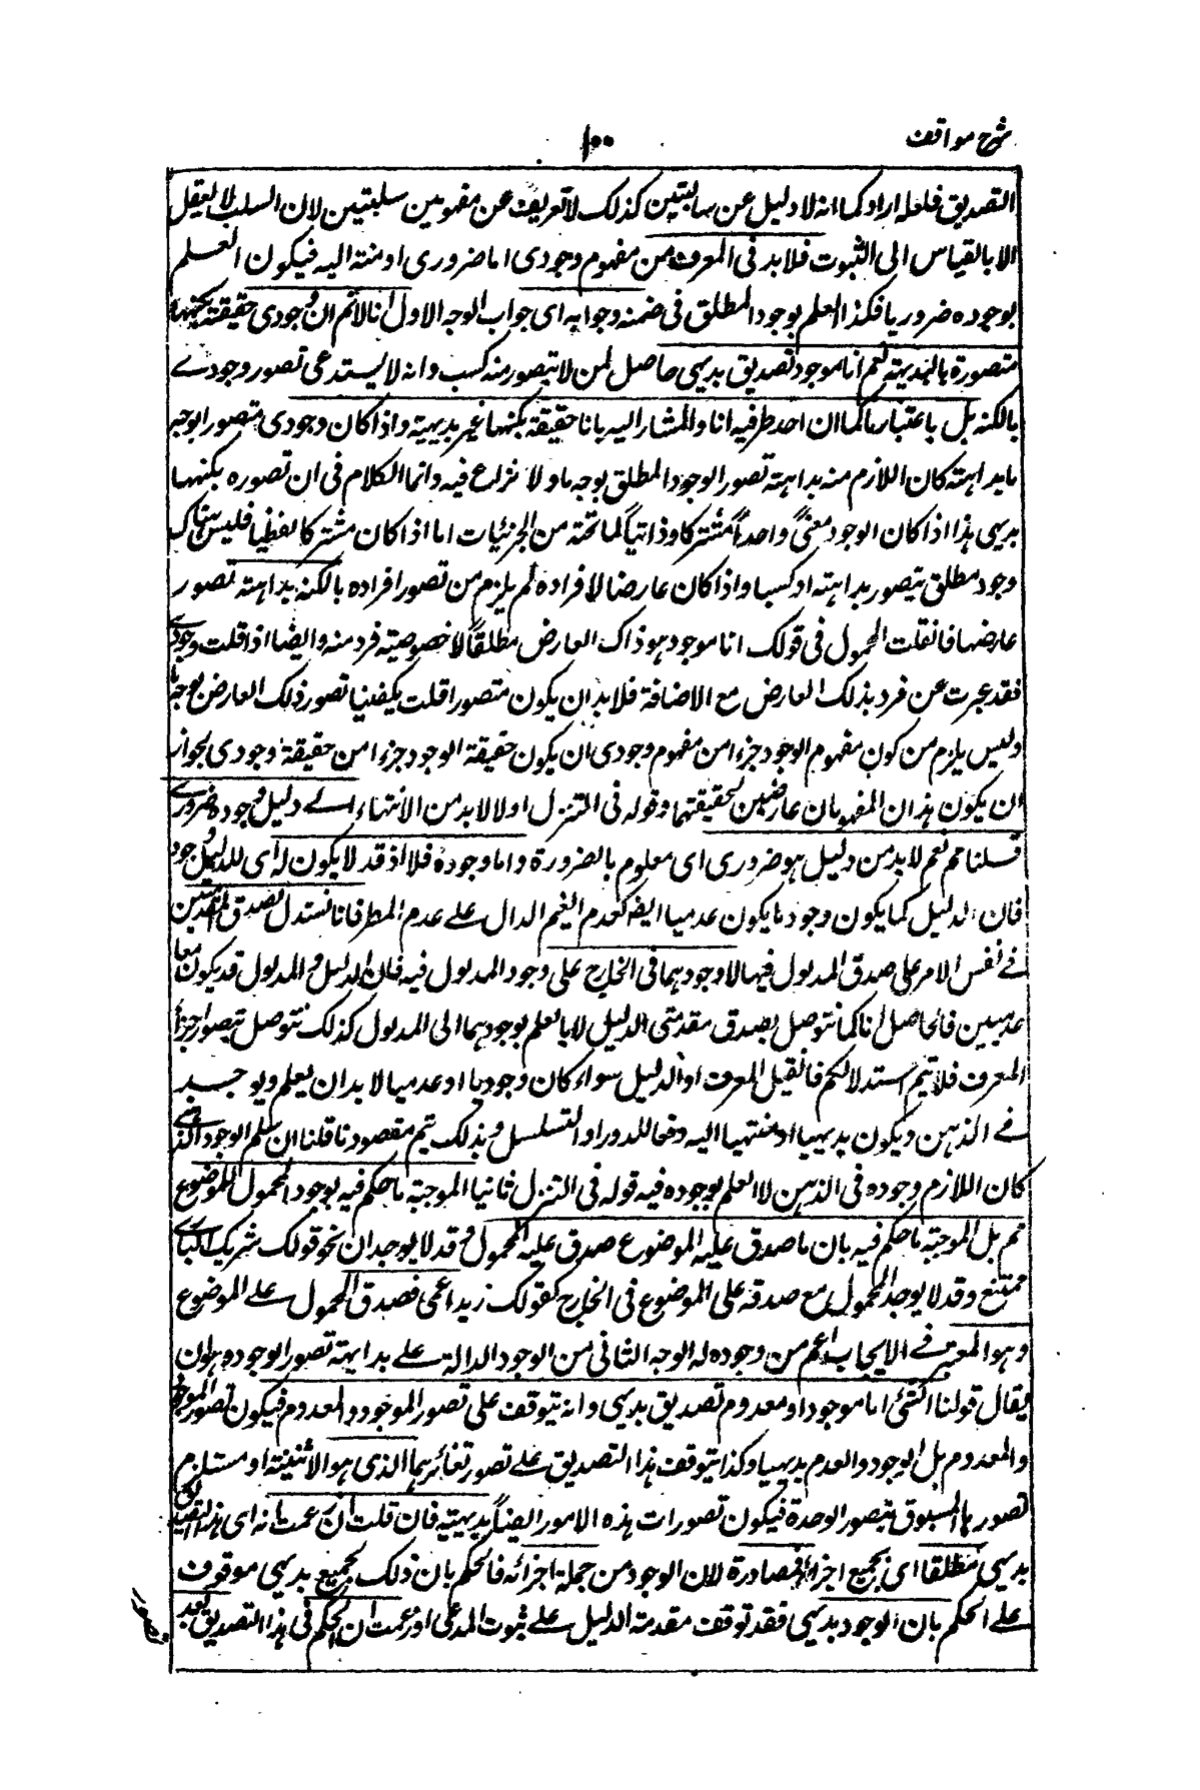 شرح مواقف
۱۰۰
التصديق فلعله اراد كما انه لا دليل عن سالبتين كذلك لا تعريف عن مفهومين سلبيتين لان السلب لا يعقل
الا بالقياس الى الثبوت فلا بد فى المعرف من مفهوم وجودى اما ضرورى او منته اليه فيكون العلم
بوجوده ضروريا فكذا العلم بوجود المطلق فى ضمنه وجوابه اى جواب الوجه الاول انا لا نم ان وجودى حقيقة بكنهها
متصورة بالبديهة نعم انا موجود تصديق بديهى حاصل لمن لا يتصور منه كسب وانه لا يستدعى تصور وجودے
بالكنه بل باعتبار ما كما ان احد طرفيه انا والمشار اليه بانا حقيقة بكنهها غير بديهية واذا كان وجودى متصورا بوجه
ما بداهته كان اللازم منه بداهته تصور الوجود المطلق بوجه ما ولا نزاع فيه وانما الكلام فى ان تصوره بكنهها
بديهى هذا اذا كان الوجود معنىً واحداً مشتركا وذاتياً لما تحته من الجزئيات اما اذا كان مشتركا لفظيا فليس هناك
وجود مطلق يتصور بداهته او كسبا واذا كان عارضا لافراده لم يلزم من تصور افراده بالكنه بداهته تصور
عارضها فانقلت المحمول فى قولك انا موجود هو ذاك العارض مطلقاً لا خصوصية فرد منه وايضا اذا قلت وجودے
فقد عبرت عن فرد بذلك العارض مع الاضافة فلا بد ان يكون متصورا قلت يكفينا تصور ذلك العارض بوجه ما
وليس يلزم من كون مفهوم الوجود جزءا من مفهوم وجودى ان يكون حقيقة الوجود جزءا من حقيقة وجودى لجواز
ان يكون هذان المفهومان عارضين لحقيقتهما وقوله فى التنزل اولا لا بد من الانتهاء الے دليل وجوده ضرورے
قلنا مم نعم لا بد من دليل هو ضرورى اى معلوم بالضرورة واما وجوده فلا اذ قد لا يكون له اى للدليل وجود
فان الدليل كما يكون وجوديا يكون عدميا ايضا كعدم الغيم الدال علے عدم المطر فانا نستدل بصدق المقدمتين
فے نفس الامر على صدق المدلول فيها لا وجودهما فى الخارج على وجود المدلول فيه فان الدليل والمدلول قد يكونان معا
عدميين فالحاصل انا كما نتوصل بصدق مقدمتى الدليل لا بالعلم بوجودهما الى المدلول كذلك نتوصل بتصور اجزاء
المعرف فلا يتم استدلالكم فانقيل المعرف او الدليل سواء كان وجوديا او عدميا لا بد ان يعلم ويوجد
فے الذهن ويكون بديهيا او منتهيا اليه دفعا للدور او التسلسل وبذلك يتم مقصودنا قلنا ان سلم الوجود الذهنے
كان اللازم وجوده فى الذهن لا العلم بوجوده فيه قوله فى التنزل ثانيا الموجبة ما حكم فيه بوجود المحمول للموضوع
مم بل الموجبة ما حكم فيه بان ما صدق عليه الموضوع صدق عليه المحمول وقد لا يوجدان نحو قولك شريك البارے
ممتنع وقد لا يوجد المحمول مع صدقه على الموضوع فى الخارج كقولك زيد اعمى فصدق المحمول علے الموضوع
وهو المعتبر فے الايجاب اعم من وجوده له الوجه الثانى من الوجوه الدالة علے بداهته تصور الوجود هو ان
يقال قولنا الشئ اما موجود او معدوم تصديق بديهى وانه يتوقف على تصور الموجود والمعدوم فيكون تصور الموجود
والمعدوم بل الوجود والعدم بديهيا وكذا يتوقف هذا التصديق علے تصور تغايرهما الذى هو الاثنينة او مستلزم
تصورها المسبوق بتصور الوحدة فيكون تصورات هذه الامور ايضاً بديهية فان قلت ان عمت انه اى هذا التصديق
بديهى مطلقا اى بجميع اجزائه فمصادرة لان الوجود من جملة اجزائه فالحكم بان ذلك الجميع بديهى موقوف
علے الحكم بان الوجود بديهى فقد توقف مقدمة الدليل علے ثبوت المدعى او زعمت ان الحكم فى هذا التصديق بعد